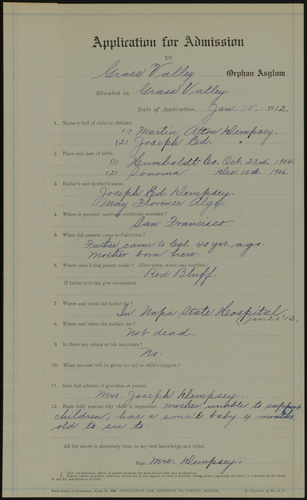 Application for Admission
TO
Grass Valley Orphan Asylum
Situated in Grass Valley
Date of Application, Jan. 18, 1912.
1. Name in full of child or children.
(1) Martin Alton Dempsey.
(2) Joseph Ed. "
2. Place and date of birth.
(1) Humboldt Co. Oct. 22d. 1904.
(2) Sonoma. Dec. 15th. 1906.
3. Father's and mother's name.
Joseph Ed Dempsey.
May Florence
4. Where is parents' marriage certificate recorded?
San Francisco.
5. When did parents come to California?
Father came to Cal 40 yrs. ago.
Mother born here.
6. Where does living parent reside? (Give town, street and number)
Red Bluff
If father is living give occupation
7. Where and when did father die?
In Napa State Hospital
8. Where and when did mother die?
Not dead.
9. Is there any estate or life insurance?
No.
10. What amount will be given for aid to child's support?
11. Give full address of guardian or parent.
Mrs. Joseph Dempsey.
12. State fully reasons why child is dependent. Mother unable to support
children, has a small baby 4 months
old to see to.
All the above is absolutely true, to my best knowledge and belief.
Sign Mrs. Dempsey.